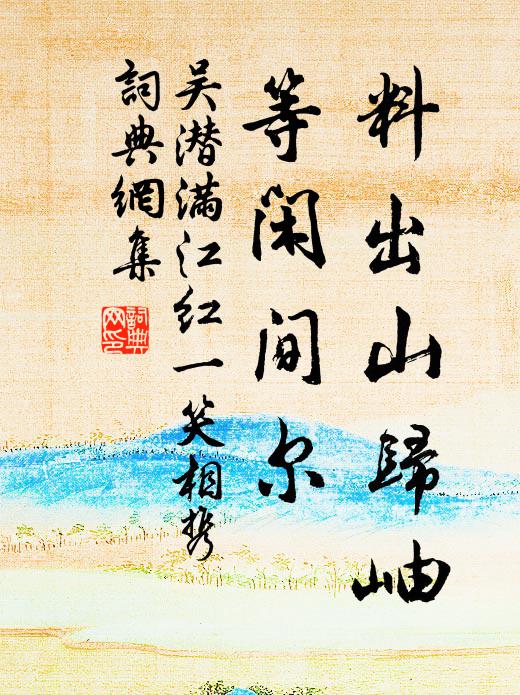 料出山歸岫
等閑间尔
吴潜满江红一笑相携
詞典網集
詞典网印